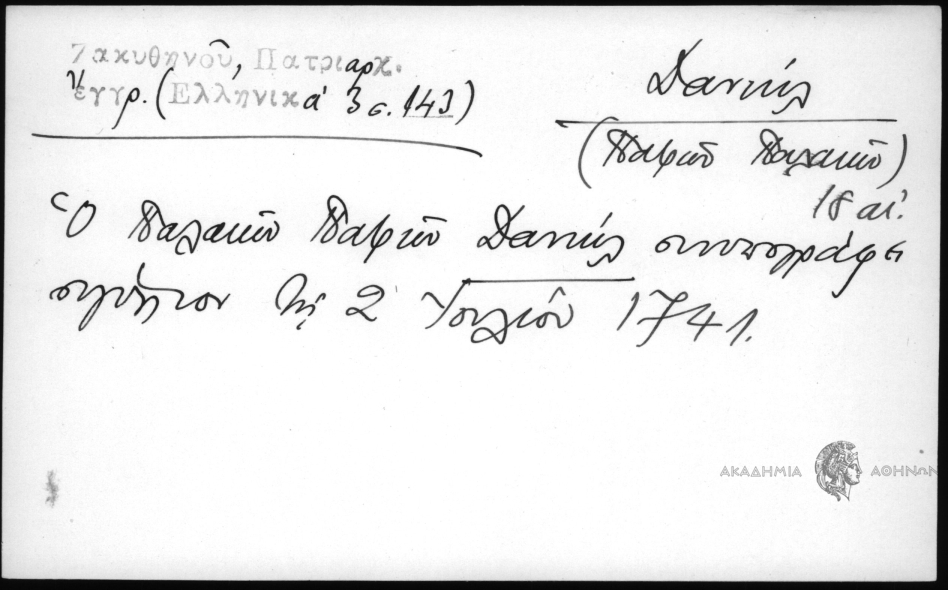 Ζακυθηνοῦ, Πατριαρχ.
ἔγγρ. (Ἑλληνικά 3 σ. 143)
Δανιήλ
(Παφῶν Παλαιῶν)
18 αἰ.
Ὁ Παλαιῶν Παφῶν Δανιήλ συνυπογράφει
σιγίλλιον τῆς 2 Ἰουλίου 1741.
ΑΚΑΔΗΜΙΑ ΑΘΗΝΩΝ